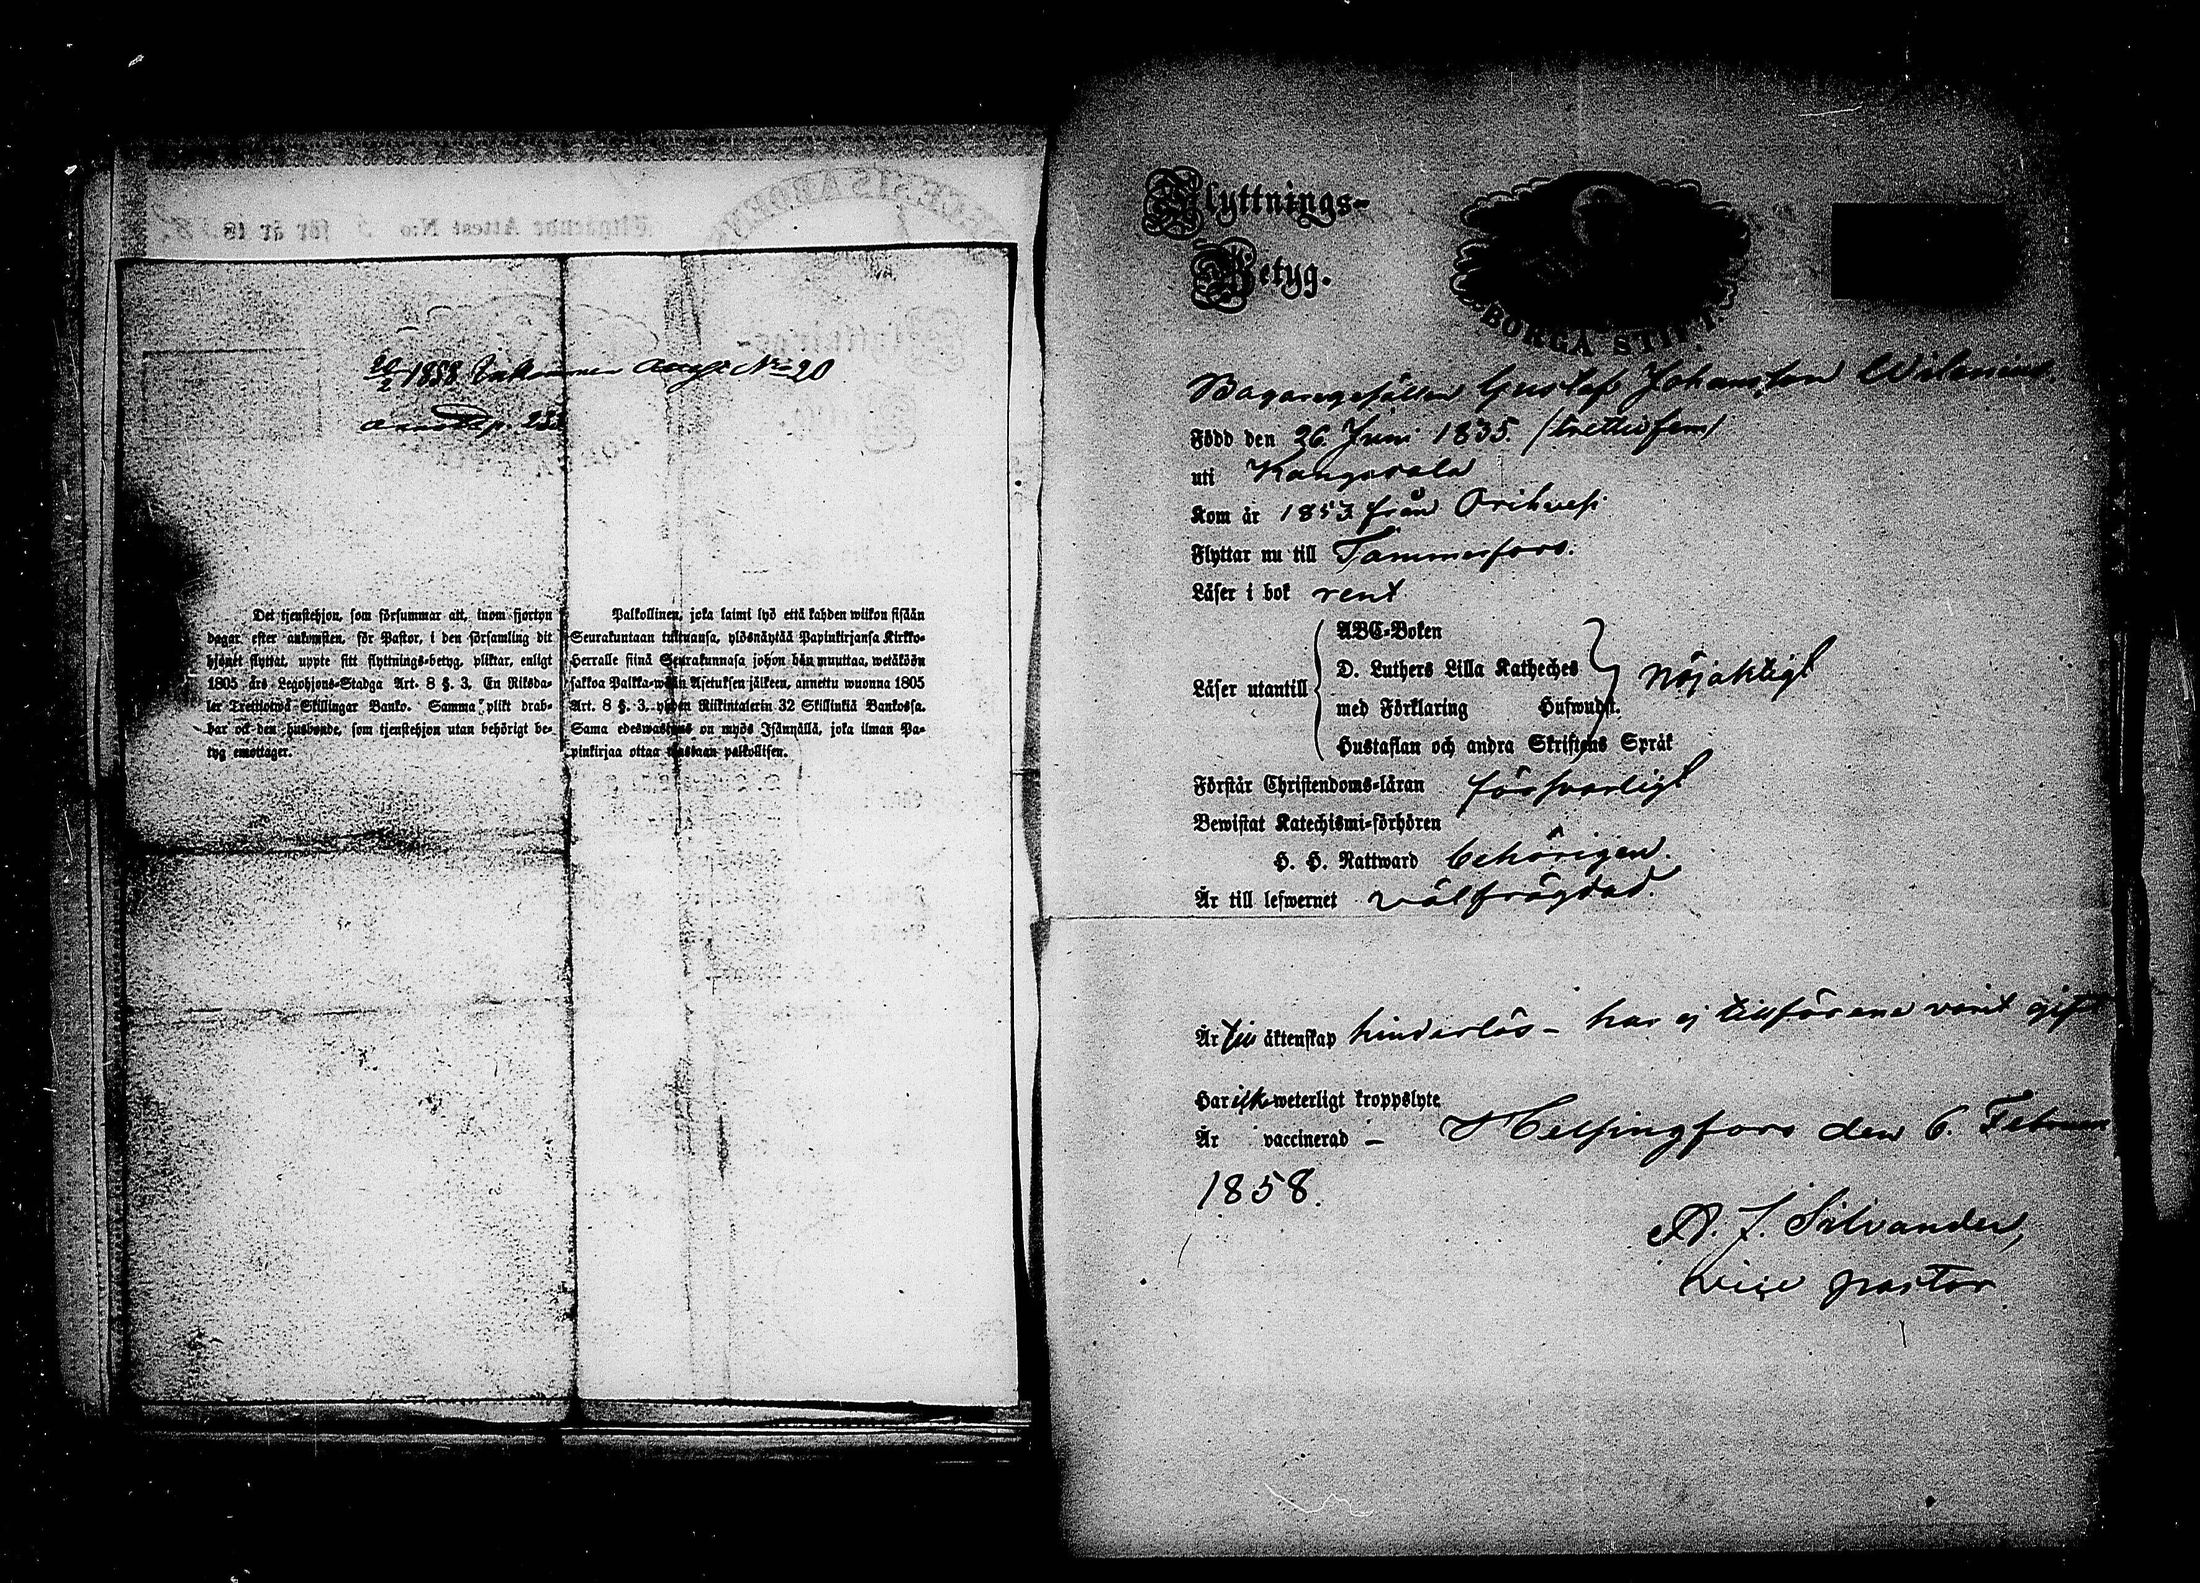 20/2 1858. Inkommen Anm. No 20
p. 233
Det tjenstehjon, som försummar att, inom fjorton
dagar efter ankomsten, för Pastor, i den församling dit
hjonet flyttat, uppte sitt flyttnings-betyg, pliktar, enligt
1805 års Legohjons-Stadga Art. 8 §. 3. En Riksda-
ler Trettiotwå Skillingar Banko. Samma plikt drab-
bar ock den husbonde, som tjenstehjon utan behörigt be-
tyg emottager.
Palkollinen, joka laimi lyö että kahden wiikon sisään
Seurakuntaan tultuansa, ylösnäytää Papinkirjansa Kirkko-
Herralle siinä Seurakunnasa johon hän muuttaa, wetäköön
sakkoa Palkka-wäen Asetuksen jälkeen, annettu wuonna 1805
Art. 8 §. 3. yhden Riikintalerin 32 Skillinkiä Bankossa.
Sama edeswastaus on myös Isännällä, joka ilman Pa-
pinkirjaa ottaa wastaan palkollisen.
Flyttnings-
Betyg.
BORGÅ STIFT.
Bagaregesällen Gustaf Johansson Wilenius.
Född den 26. Juni 1835. /trettiofem/
uti Kangasala
Kom år 1853 från Orihvesi
Flyttar nu till Tammerfors.
Läser i bok rent
Läser utantill
ABC-Boken
D. Luthers Lilla Katheches
med Förklaring Hufwudst.
Hustaflan och andra Skriftens Språk
nöjaktigt
Förstår Christendoms-läran försvarligt
Bewistat Katechismi-förhören
H. H. Nattward behörigen.
Är till lefwernet välfrägdad.
Är till äktenskap hinderlös – har ej tillförene varit gift
Har icke weterligt kroppslyte
Är vaccinerad – Helsingfors den 6. Februari
1858.
A. J. Silvander,
vice pastor.